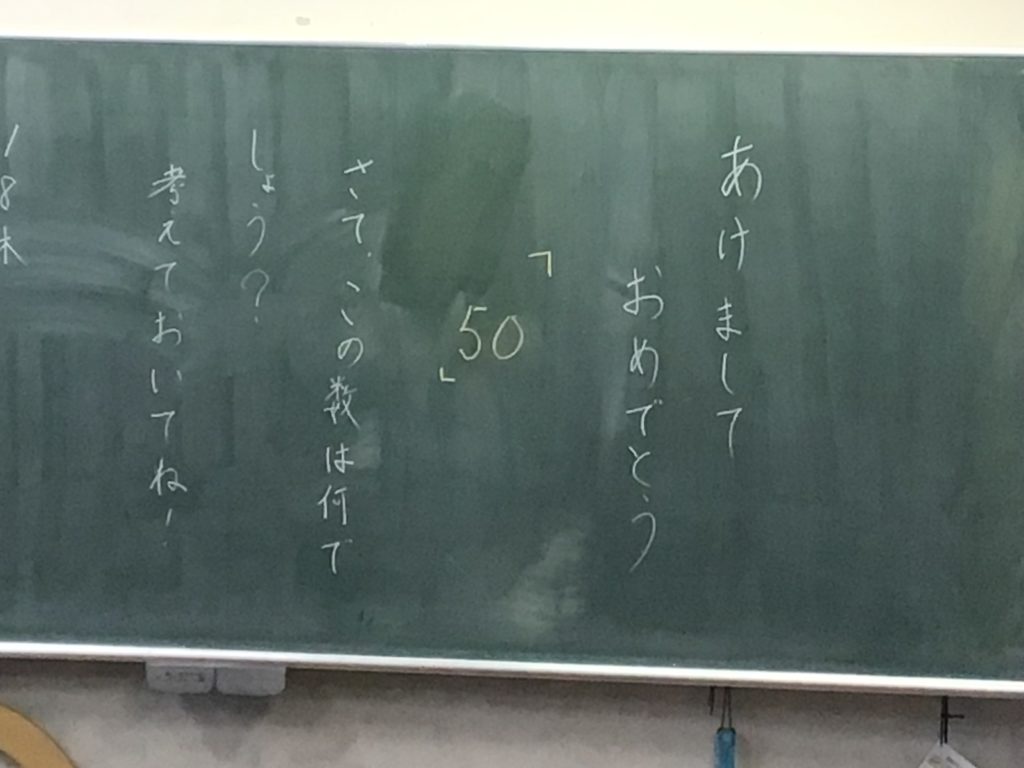 あけまして
おめでとう
「50」
さて、この数は何で
しょう？
考えておいてね！
1/8木